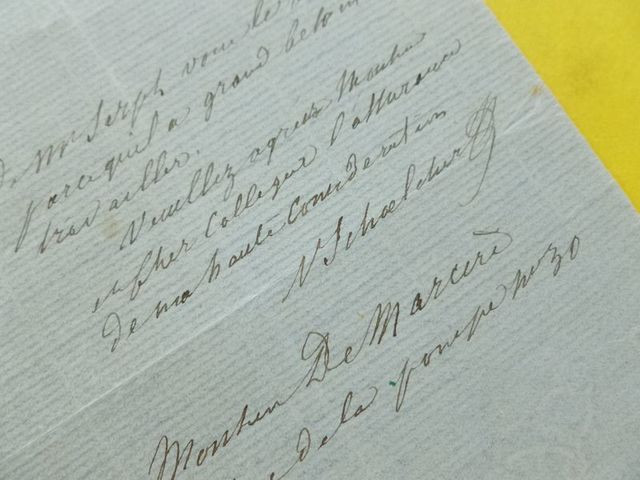 de Mr Serph vous le
parcequ'il a grand besoin
travailler.
Veuillez agréer Monsieur
et cher Collègue l'assurance
de ma haute Considération
V Schoelcher
Monsieur De Marcère
de la pompe no 30